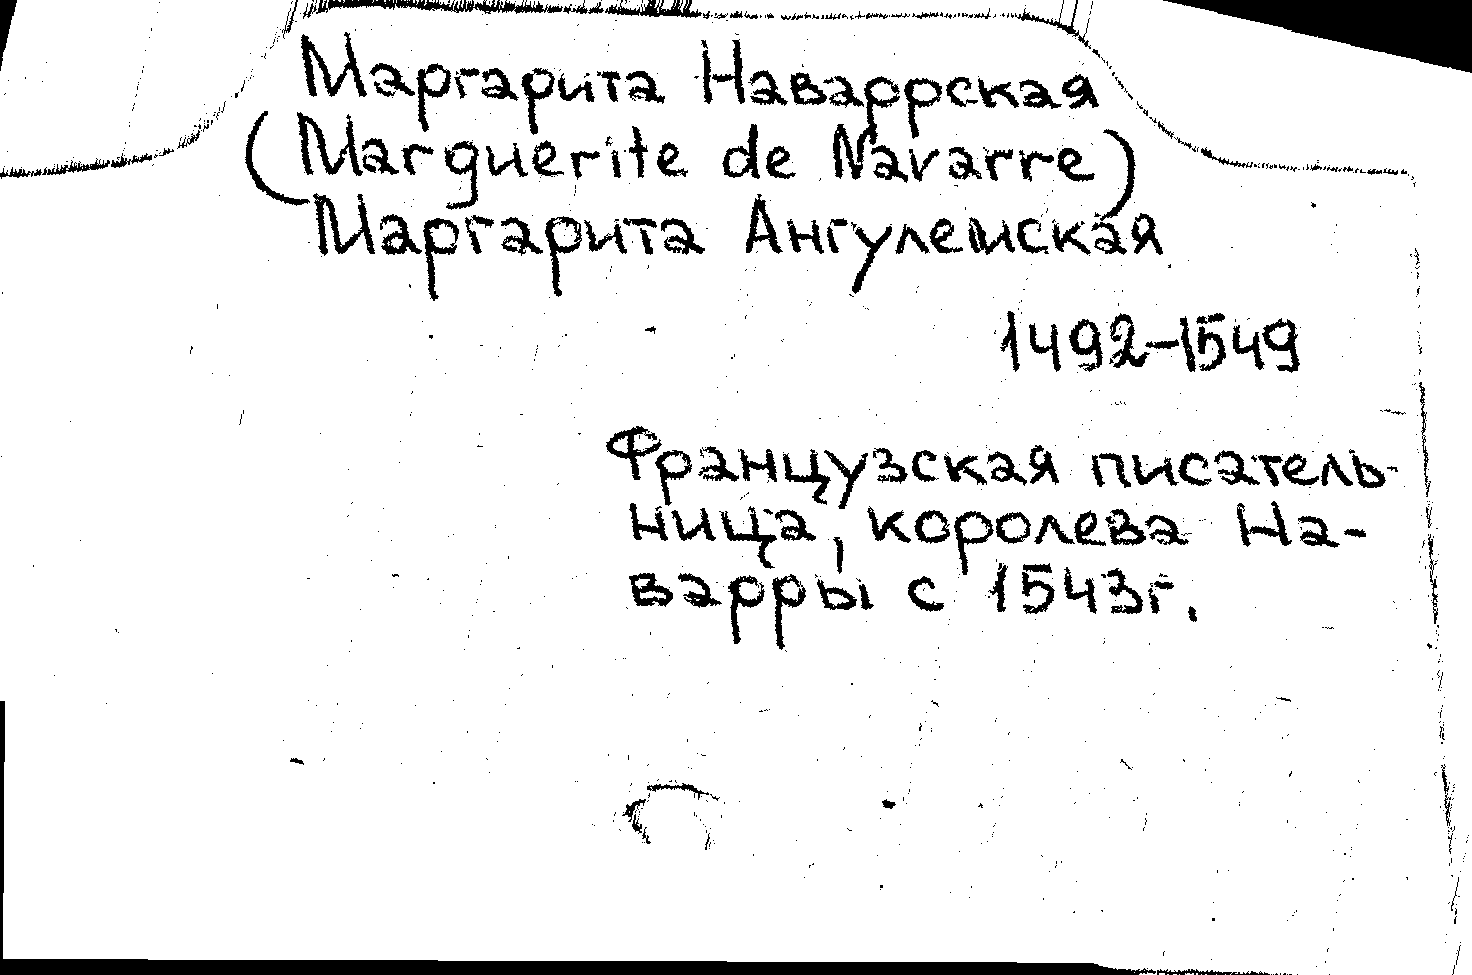 Маргарита Наваррская
(Marguerite de Navarre)
Маргарита Ангулемская
1492-1549
Французская писатель-
ница, королева На-
варры с 1543г.